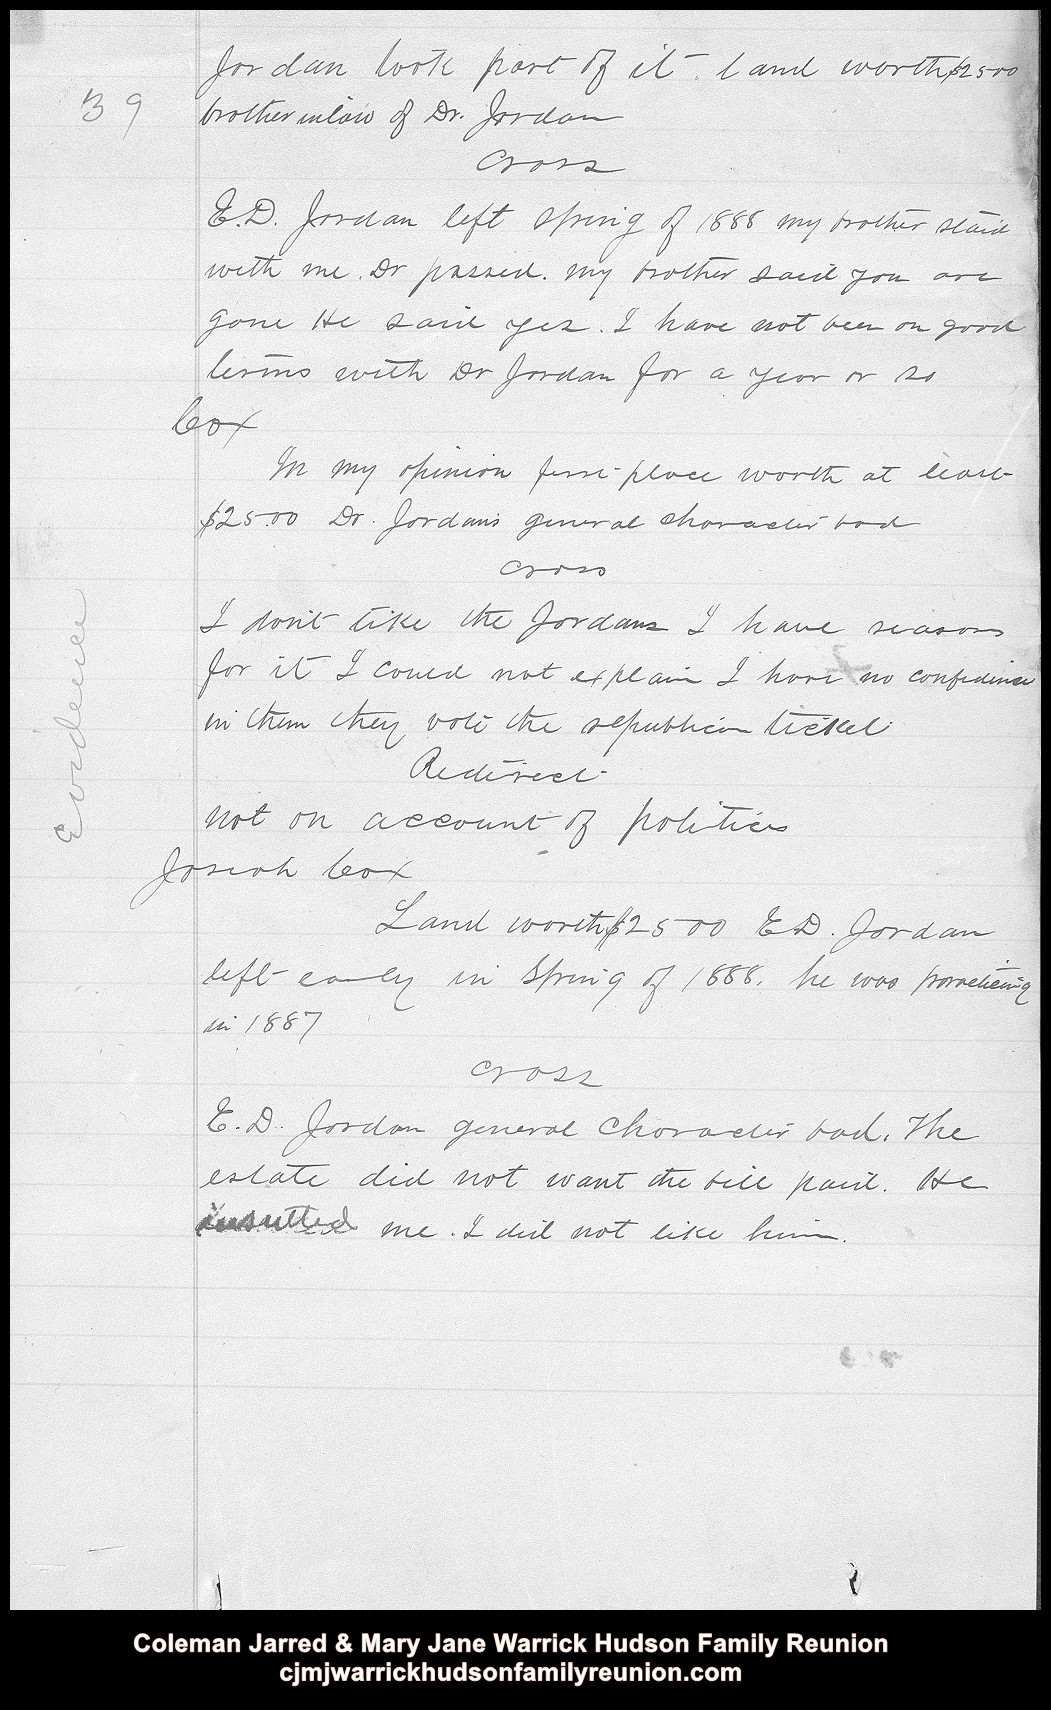 39
Jordan took part of it. land worth $2500
brother inlaw of Dr. Jordan
Cross
E.D. Jordan left spring of 1888 my brother staid
with me. Dr passed. my brother said you are
gone He said yes. I have not been on good
terms with Dr Jordan for a year or so
Cox
In my opinion place worth at least
$2500 Dr. Jordan's general character bad
Cross
I don't like the Jordans I have reasons
for it I could not explain I have no confidence
in them they vote the republican ticket
Redirect
not on account of politics
Josiah Cox
Land worth $2500 E.D. Jordan
left early in Spring of 1888. he was practicing
in 1887
Cross
E.D. Jordan general character bad. The
estate did not want the bill paid. He
insulted me. I did not like him.
Evidence
Coleman Jarred & Mary Jane Warrick Hudson Family Reunion
cjmjwarrickhudsonfamilyreunion.com